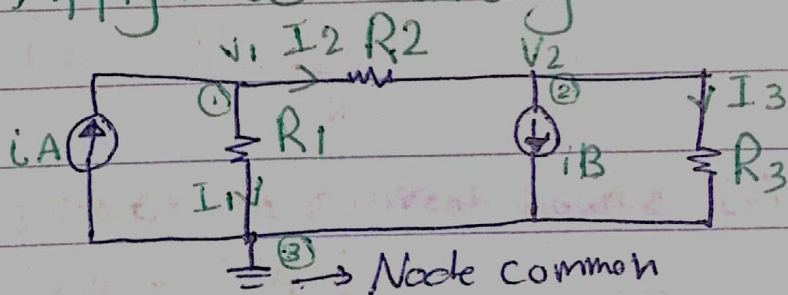 V1 I2 R2 V2
① ② I3
iA R1 iB R3
I1
③ → Node common